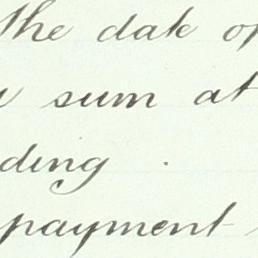 the date of
sum at
ding .
payment